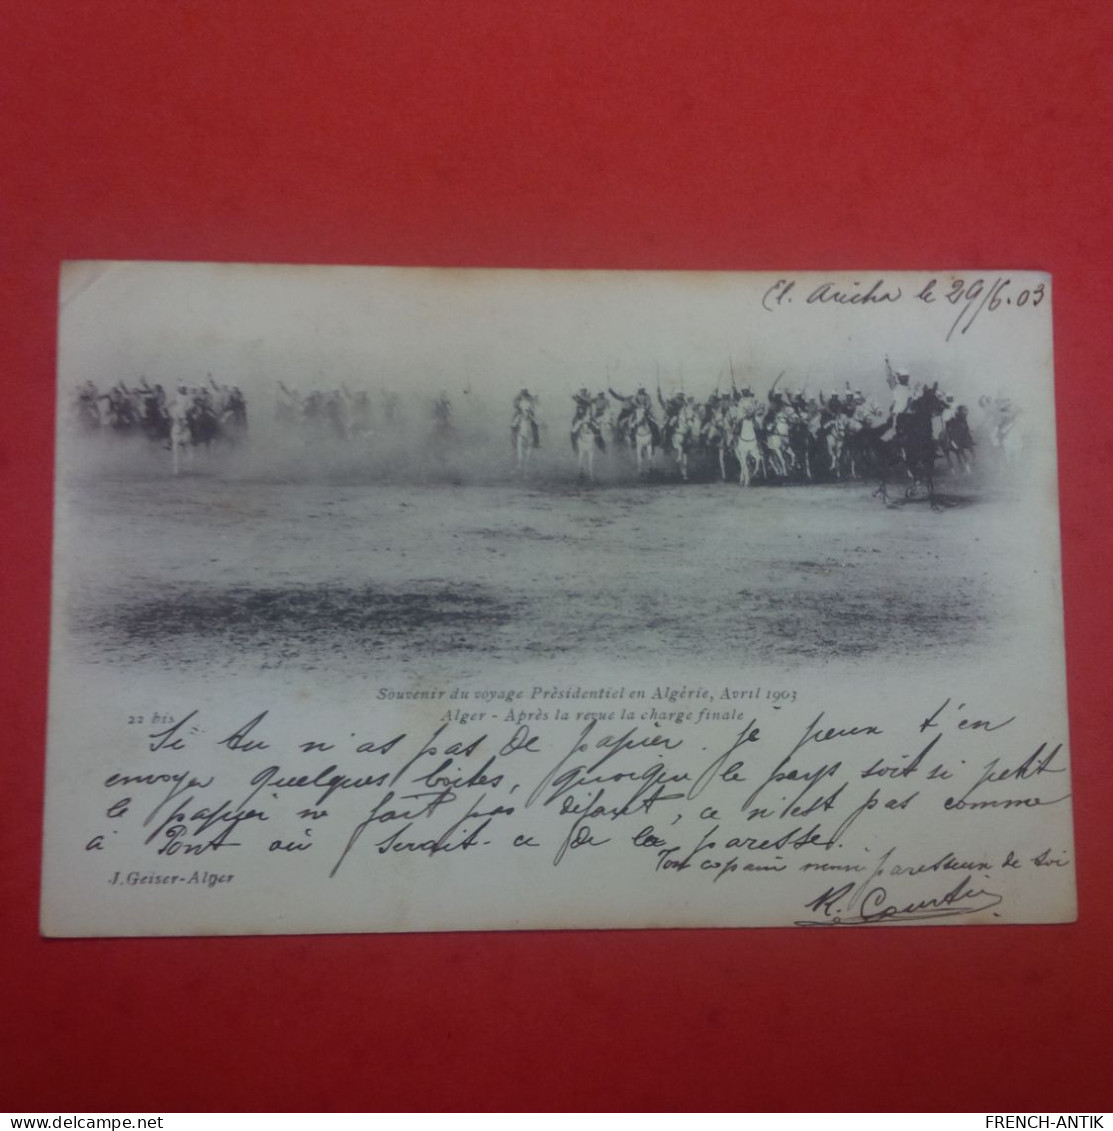 El. Aricha le 29/6.03
Souvenir du voyage Présidentiel en Algérie, Avril 1903
22 bis
Alger - Après la revue la charge finale
Si tu n'as pas de papier. je peux t'en
envoyer quelques boites, quoique le pays soit si petit
le papier ne fait pas défaut, ce n'est pas comme
à Pont où serait-ce de la paresse.
Ton copain moins paresseux de toi
J. Geiser-Alger
R. Courtin
delcampe.net
FRENCH-ANTIK